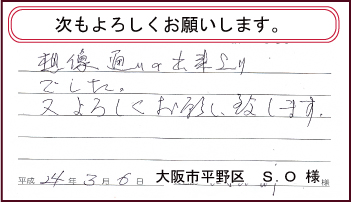 次もよろしくお願いします。
想像通りの出来上り
でした。
又よろしくお願い致します。
平成 24年 3月 6日 大阪市平野区 S.O 様 様